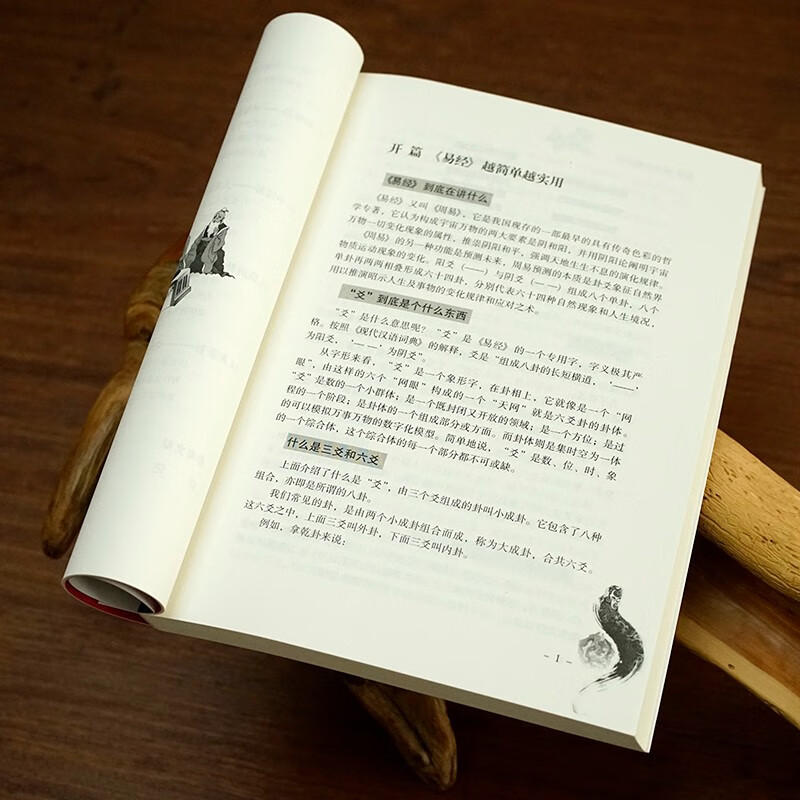 开 篇 《易经》越简单越实用
《易经》到底在讲什么
《易经》又叫《周易》，它是我国现存的一部最早的具有传奇色彩的哲
学专著，它认为构成宇宙万物的两大要素是阴和阳，并用阴阳论阐明宇宙
万物一切变化现象的属性，推崇阴阳和平，强调天地生生不息的演化规律。
《周易》的另一种功能是预测未来，周易预测的本质是卦爻象征自然界
物质运动现象的变化。阳爻（——）与阴爻（— —）组成八个单卦，八个
单卦再两两相叠形成六十四卦，分别代表六十四种自然现象和人生境况，
用以推演昭示人生及事物的变化规律和应对之术。
“爻”到底是个什么东西
“爻”是什么意思呢？“爻”是《易经》的一个专用字，字义极其严
格。按照《现代汉语词典》的解释，爻是“组成八卦的长短横道，‘——’
为阳爻，‘— —’为阴爻”。
从字形来看，“爻”是一个象形字，在卦相上，它就像是一个“网
眼”，由这样的六个“网眼”构成的一个“天网”就是六爻卦的卦体。
“爻”是数的一个小群体；是一个既封闭又开放的领域；是一个方位；是过
程的一个阶段；是卦体的一个组成部分或方面。而卦体则是集时空为一体
的可以模拟万事万物的数字化模型。简单地说，“爻”是数、位、时、象
的一个综合体，这个综合体的每一个部分都不可或缺。
什么是三爻和六爻
上面介绍了什么是“爻”，由三个爻组成的卦叫小成卦。它包含了八种
组合，亦即是所谓的八卦。
我们常见的卦，是由两个小成卦组合而成，称为大成卦，合共六爻。
这六爻之中，上面三爻叫外卦，下面三爻叫内卦。
例如，拿乾卦来说：
- 1 -